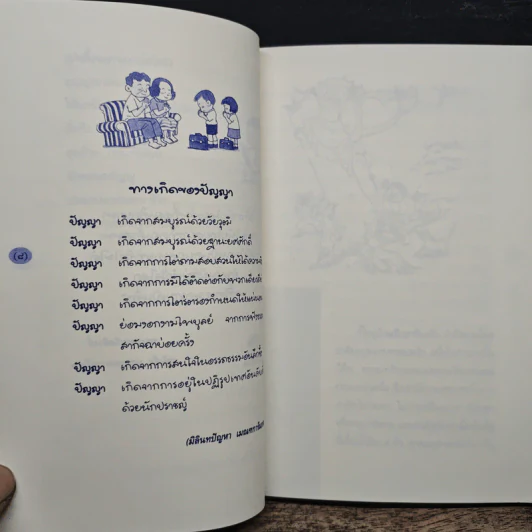 ทางเกิดของปัญญา
ปัญญา เกิดจากสมบูรณ์ด้วยวัยวุฒิ
ปัญญา เกิดจากสมบูรณ์ด้วยฐานะยศศักดิ์
ปัญญา เกิดจากการไต่ถามสอบสวนให้ได้ความ
ปัญญา เกิดจากการมิได้ติดต่อกับพวก
ปัญญา เกิดจากการไตร่ตรองกำหนดให้
ปัญญา ย่อมงอกงามไพบูลย์ จากการ
สากัจฉาบ่อยครั้ง
ปัญญา เกิดจากการสนใจในอรรถธรรม
ปัญญา เกิดจากการอยู่ในปฏิรูปเทศ
ด้วยนักปราชญ์
(๔)
(มิลินทปัญหา